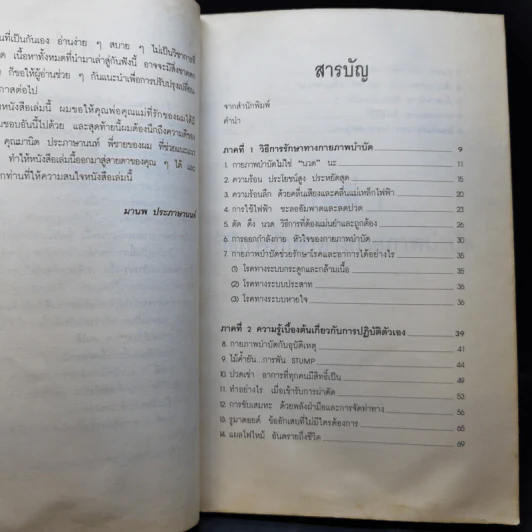 นที่เป็นกันเอง อ่านง่าย ๆ สบาย ๆ ไม่เป็นวิชาการ
ด เนื้อหาทั้งหมดที่นำมาเล่าสู่กันฟังนี้ อาจจะมีสิ่งขาดตก
ก็ขอให้ผู้อ่านช่วย ๆ กันแนะนำเพื่อการปรับปรุง
กาสต่อไป
หนังสือเล่มนี้ ผมขอให้คุณพ่อคุณแม่ที่รักของผมได้
นชอบอันนี้ไปด้วย และสุดท้ายนี้ผมต้องนึกถึงความดีของ
คุณมานิต ประภาษานนท์ พี่ชายของผม ที่ช่วยแนะแนว
ทำให้หนังสือเล่มนี้ออกมาสู่สายตาของคุณ ๆ ได้ และ
กท่านที่ให้ความสนใจหนังสือเล่มนี้
มานพ ประภาษานนท์
สารบัญ
จากสำนักพิมพ์
คำนำ
ภาคที่ 1 วิธีการรักษาทางกายภาพบำบัด 9
1. กายภาพบำบัดไม่ใช่ "นวด" นะ 11
2. ความร้อน ประโยชน์สูง ประหยัดสุด 15
3. ความร้อนลึก ด้วยคลื่นเสียงและคลื่นแม่เหล็กไฟฟ้า 20
4. การใช้ไฟฟ้า ชะลออัมพาตและลดปวด 23
5. ดัด ดึง นวด วิธีการที่ต้องแม่นยำและถูกต้อง 26
6. การออกกำลังกาย หัวใจของกายภาพบำบัด 30
7. กายภาพบำบัดช่วยรักษาโรคและอาการได้อย่างไร 35
(1) โรคทางระบบกระดูกและกล้ามเนื้อ 35
(2) โรคทางระบบประสาท 36
(3) โรคทางระบบหายใจ 36
ภาคที่ 2 ความรู้เบื้องต้นเกี่ยวกับการปฏิบัติตัวเอง 39
8. กายภาพบำบัดกับอุบัติเหตุ 41
9. ไม้ค้ำยัน...การพัน STUMP 44
10. ปวดเข่า อาการที่ทุกคนมีสิทธิ์เป็น 49
11. ทำอย่างไร เมื่อเข้ารับการผ่าตัด 53
12. การขับเสมหะ ด้วยพลังฝ่ามือและการจัดท่าทาง 56
13. รูมาตอยด์ ข้ออักเสบที่ไม่มีใครต้องการ 65
14. แผลไฟไหม้ อันตรายถึงชีวิต 69